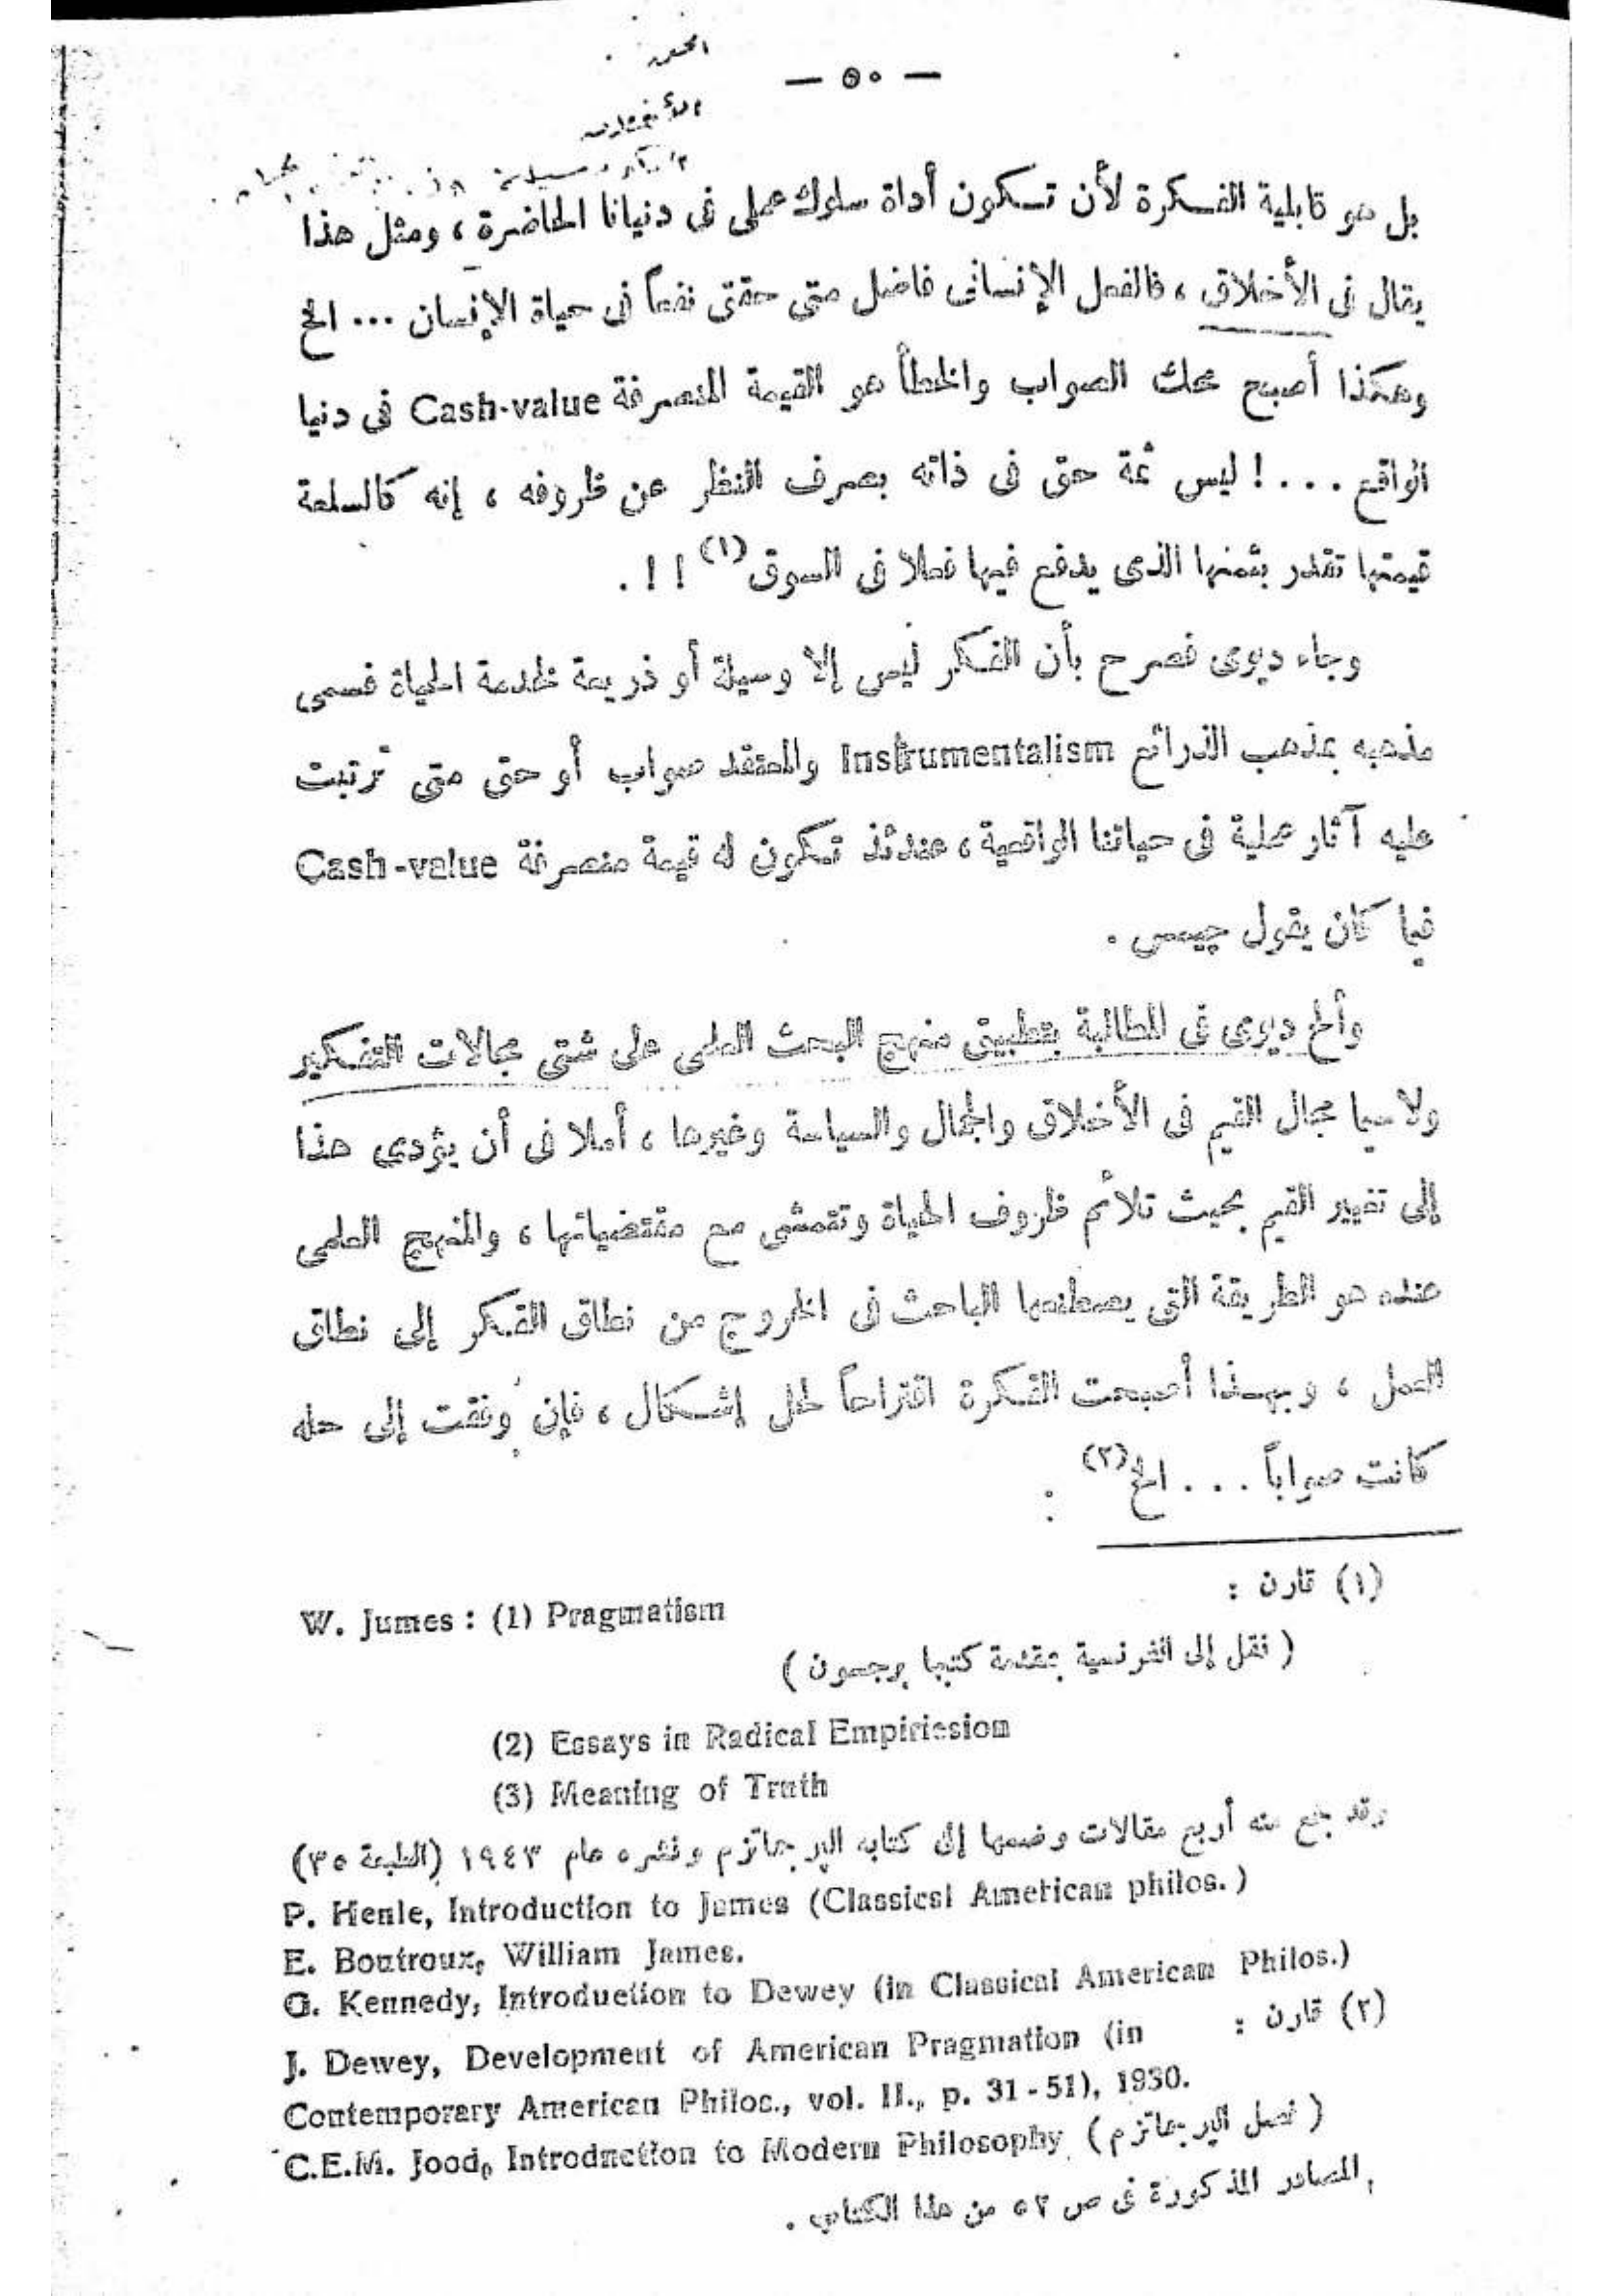 — ٥٠ —
بل هو قابلية الفكرة لأن تكون أداة سلوك عملى فى دنيانا الحاضرة ، ومثل هذا
يقال فى الأخلاق ، فالفعل الإنسانى فاضل متى حقق نفعاً فى حياة الإنسان ... الخ
وهكذا أصبح محك الصواب والخطأ هو القيمة المنصرفة Cash-value فى دنيا
الواقع . . . ! ليس ثمة حق فى ذاته بصرف النظر عن ظروفه ، إنه كالسلعة
قيمتها تقدر بثمنها الذى يدفع فيها فعلا فى السوق (١) ! ! .
وجاء ديوى فصرح بأن الفكر ليس إلا وسيلة أو ذريعة لخدمة الحياة فسمى
مذهبه بمذهب الذرائع Instrumentalism والمعتقد صواب أو حق متى ترتبت
عليه آثار عملية فى حياتنا الواقعية ، عندئذ تكون له قيمة منصرفة Cash-value
فيما كان يقول چيمس .
وألح ديوى فى المطالبة بتطبيق منهج البحث العلمى على شتى مجالات التفكير
ولا سيما مجال القيم فى الأخلاق والجمال والسياسة وغيرها ، أملا فى أن يؤدى هذا
إلى تغيير القيم بحيث تلائم ظروف الحياة وتتمشى مع مقتضياتها ، والمنهج العلمى
عنده هو الطريقة التى يصطنعها الباحث فى الخروج من نطاق الفكر إلى نطاق
العمل ، وبهذا أصبحت الفكرة اقتراحاً لحل إشكال ، فإن وفقت إلى حله
كانت صواباً . . . الخ (٢) .
(١) قارن :
W. Jumes : (1) Pragmatism
( نقل إلى الفرنسية بمقدمة كتبها برجسون )
(2) Essays in Radical Empiricsion
(3) Meaning of Truth
وقد جمع منه أربع مقالات وضمها إلى كتابه البرجماتزم ونشره عام ١٩٤٣ (الطبعة ٣٥)
P. Henle, Introduction to James (Classicsl American philos.)
E. Boutroux, William James.
G. Kennedy, Introduction to Dewey (in Classical American Philos.)
(٢) قارن :
J. Dewey, Development of American Pragmation (in
Contemporary American Philos., vol. II., p. 31 - 51), 1930.
C.E.M. Jood, Introdnction to Modern Philosophy ( فصل البرجماتزم )
المصادر المذكورة فى ص ٥٢ من هذا الكتاب .